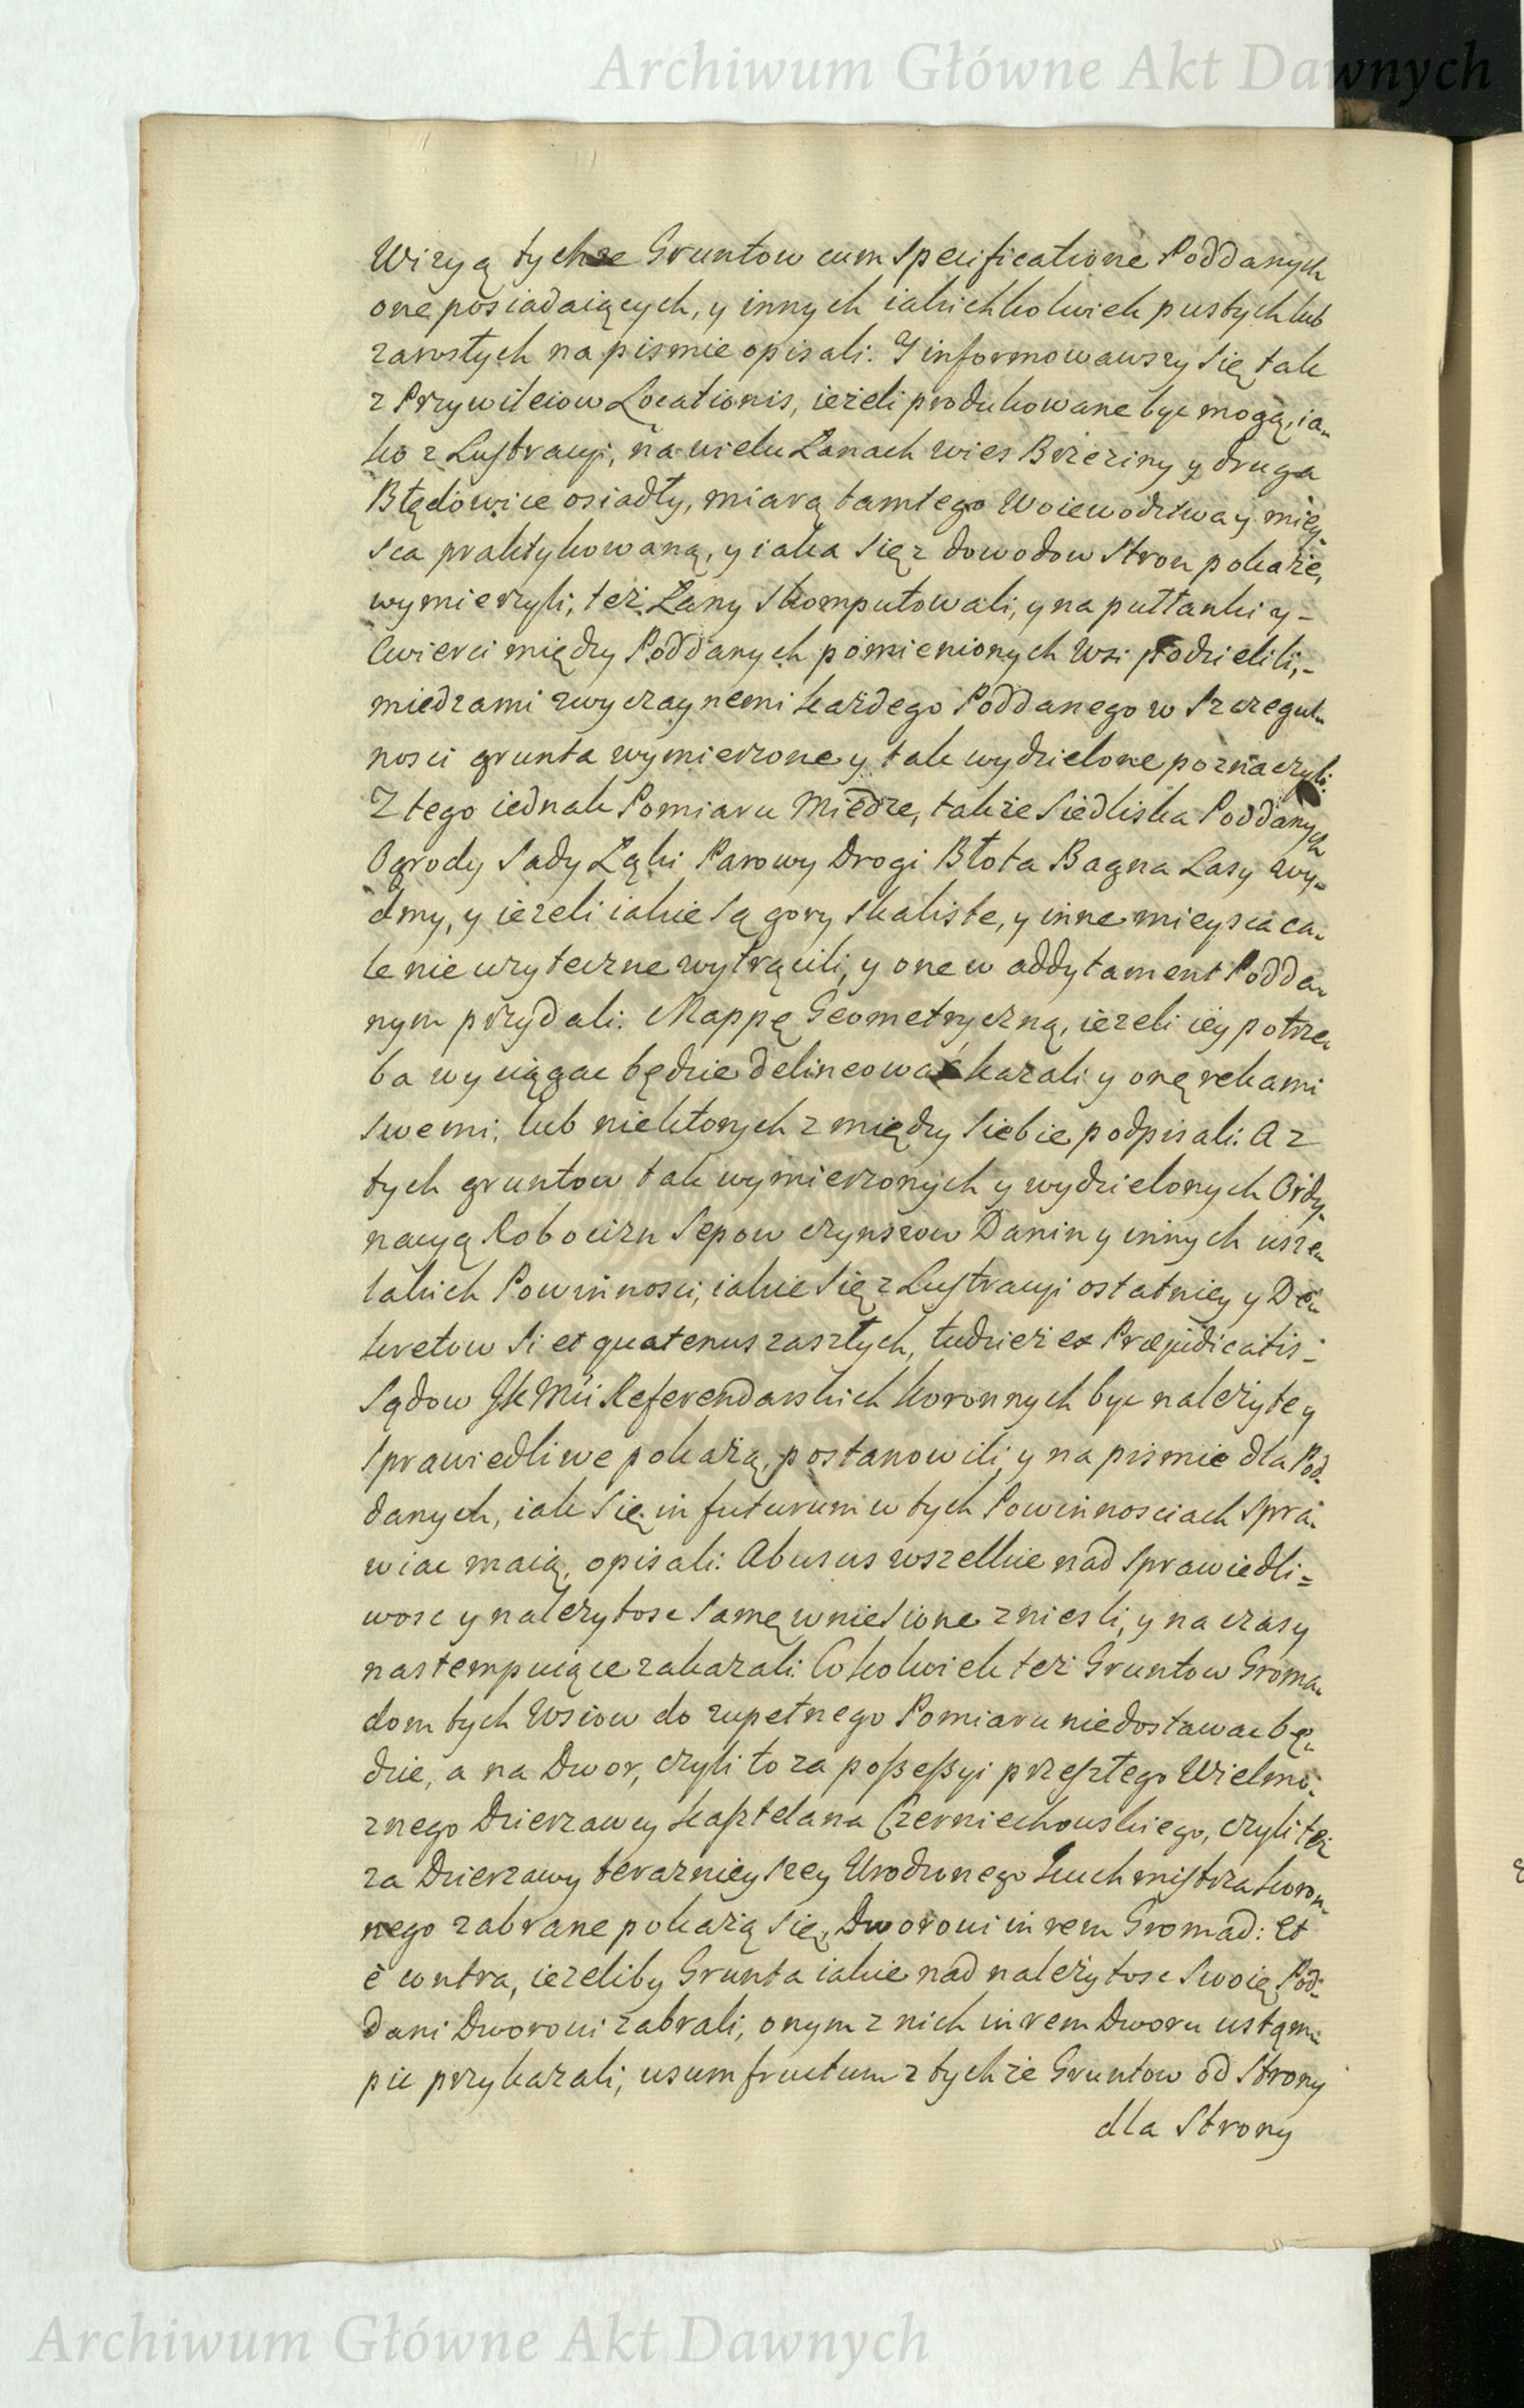 Archiwum Główne Akt Dawnych
Wizyą tychze Gruntow cum specificatione Poddanych
one posiadaiących, y innych iakichkolwiek pustych lub
zarosłych na pismie opisali. Y informowawszy się tak
z Przywileiow Locationis, ieżeli produkowane byc mogą, ia-
ko z Lustracyi, na wielu Łanach wies Brzeziny y druga
Błędowice osiadły, miarą tamtego Woiewodztwa y miey-
sca praktykowaną, y iaka się z dowodow stron pokaże,
wymierzyli, też Łany skomputowali, y na pułłanki y -
cwierci między Poddanych pomienionych Wsi podzielili, -
miedzami zwyczaynemi każdego Poddanego w szczegul-
nosci grunta wymierzone y tak wydzielone poznaczyli.
Z tego iednak Pomiaru Miedze, takze Siedliska Poddanych
Ogrody Sady Łąki Parowy Drogi Błota Bagna Lasy wy-
dmy, y ieżeli iakie są gory skaliste, y inne mieysca ca-
le nie użyteczne wytrącili, y one w addytament Podda-
nym przydali. Mappę Geometryczną, ieżeli iey potrze-
ba wyciągac będzie delineować kazali y onę rękami
swemi, lub niektorych z między siebie podpisali. A z
tych gruntow tak wymierzonych y wydzielonych Ordy-
nacyą Robocizn Sepow czynszow Danin y innych wsze-
lakich Powinnosci, iakie się z Lustracyi ostatniey y De-
kretow si et quatenus zaszłych, tudzież ex Præjudicatis -
Sądow JKMci Referendarskich koronnych byc należyte y
sprawiedliwe pokażą, postanowili y na pismie dla Pod-
danych, iak się in futurum w tych Powinnosciach spra-
wiac maią, opisali. Abusus wszelkie nad sprawiedli=
wosc y należytosc samę wniesione zniesli, y na czasy
nastempuiące zakazali. Cokolwiek też Gruntow Groma-
dom tych Wsiow do zupełnego Pomiaru niedostawac bę-
dzie, a na Dwor, czyli to za possessyi przeszłego Wielmo-
znego Dzierzawcy kasztelana Czerniechowskiego, czyli też
za Dzierzawy terazniejszey Urodzonego kuchmistrza koron-
nego zabrane pokażą się, Dworowi in rem Gromad: et
è contra, ieżeliby Grunta iakie nad należytosc swoię Pod-
dani Dworowi zabrali, onym z nich in rem Dworu ustąm-
pic przykazali, usumfructum z tychże Gruntow od strony
dla strony
Archiwum Główne Akt Dawnych